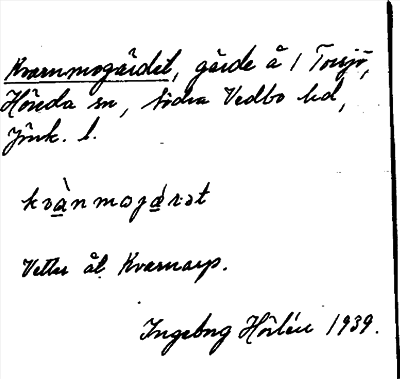 Kvarnmogärdet, gärde å 1 Torsjö,
Höreda sn, Södra Vedbo hd,
Jönk. l.
kvànmogáṛət
Vetter åt Kvarnarp.
Ingeborg Hörlén 1939.